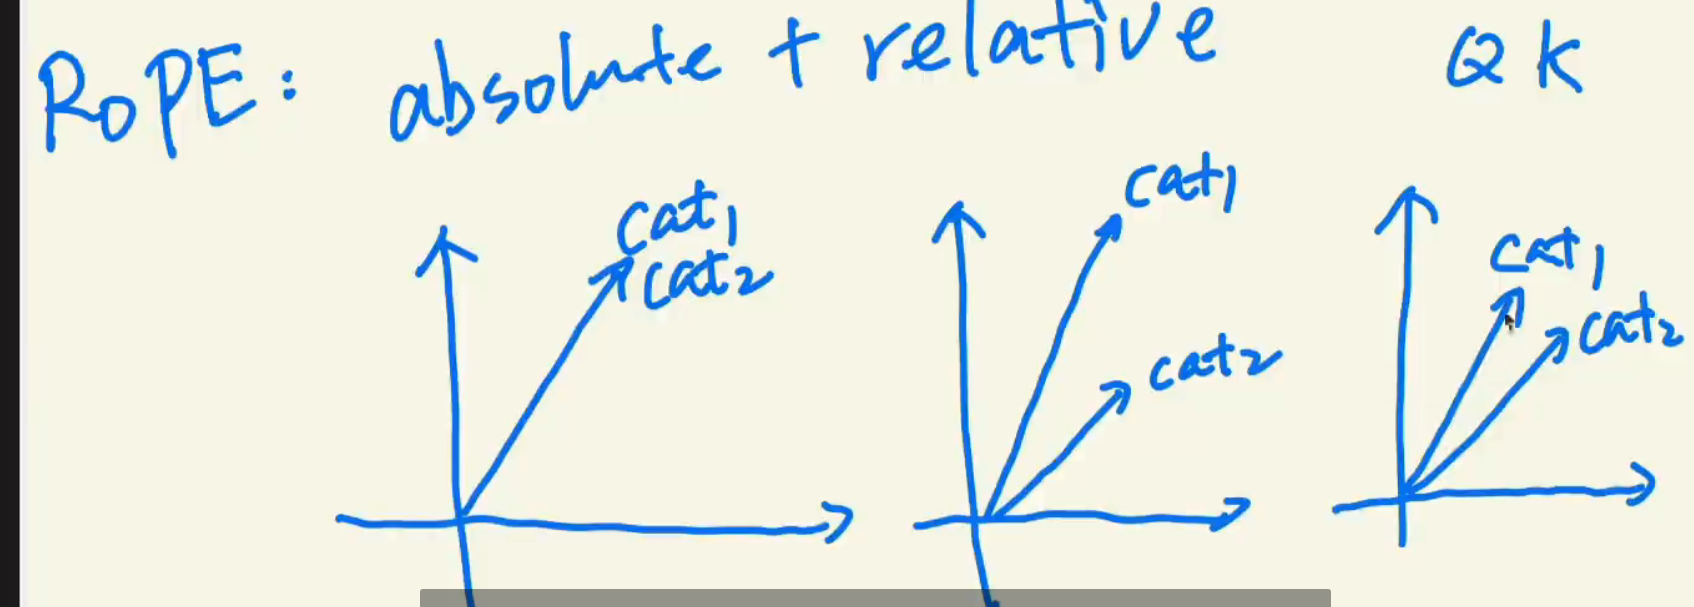 RoPE: absolute + relative QK
cat1
cat2
cat1
cat2
cat1
cat2